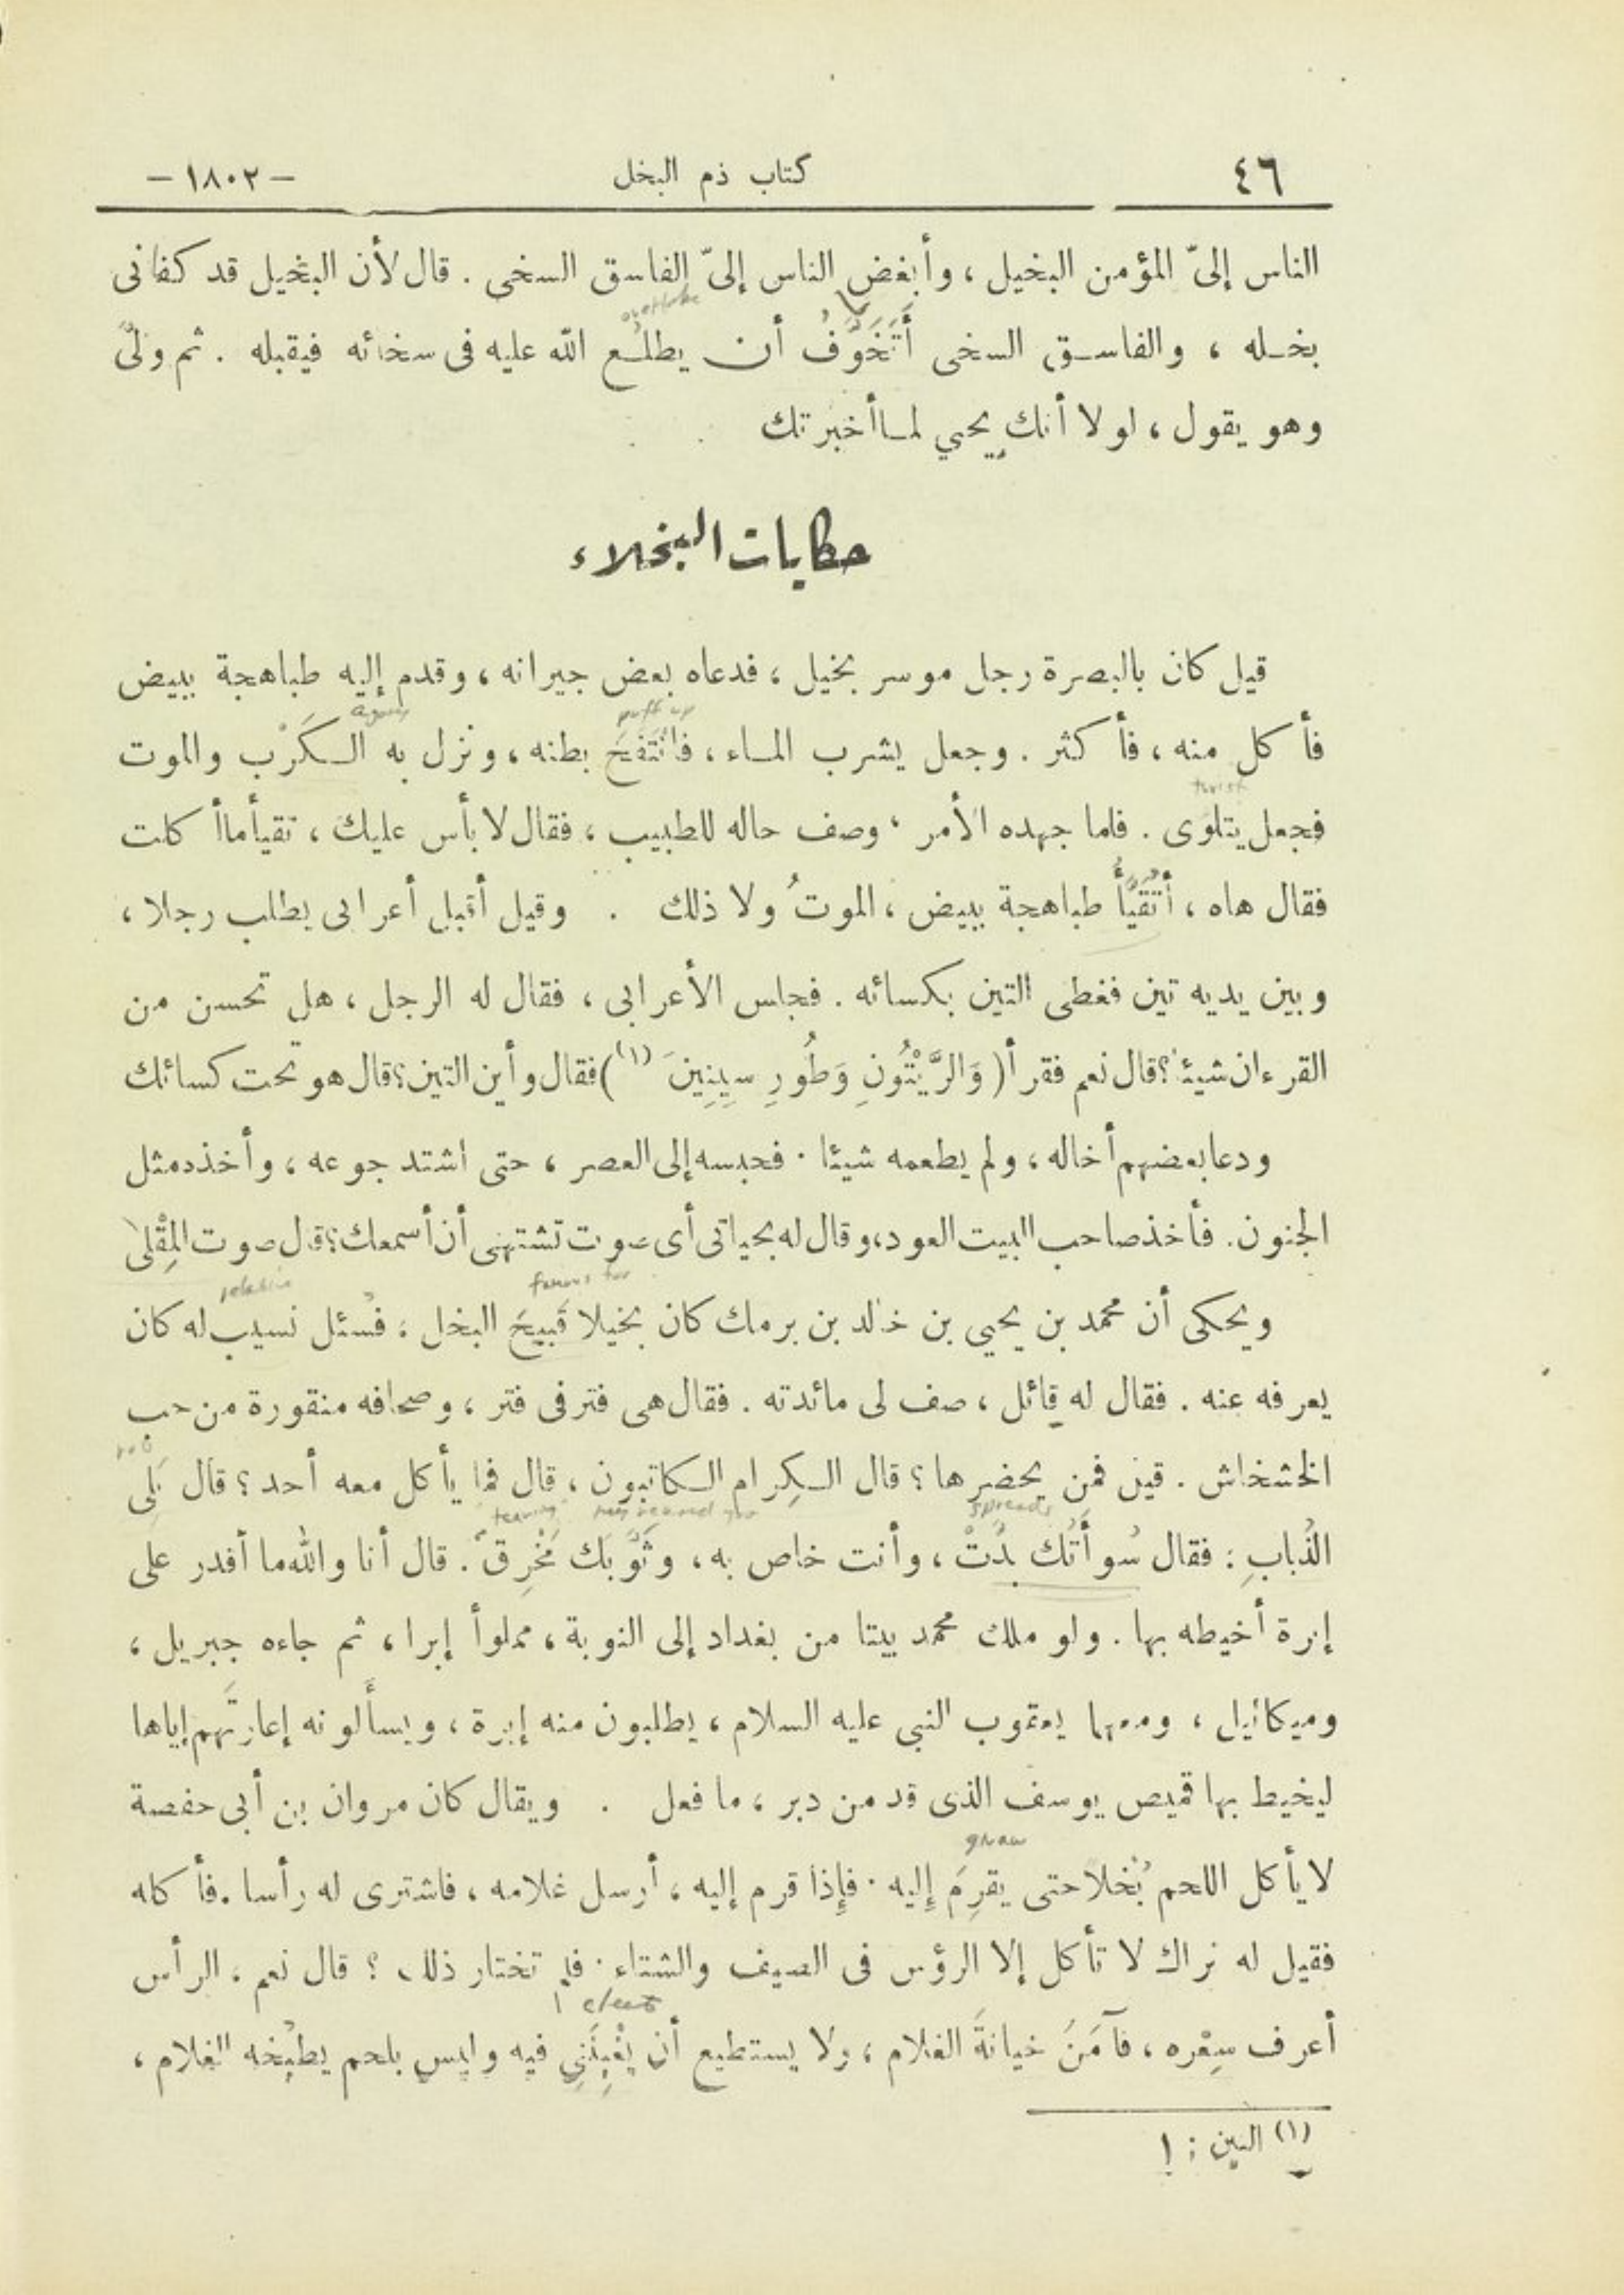 ٤٦ كتاب ذم البخل – ١٨٠٢ –
الناس إلىّ المؤمن البخيل ، وأبغض الناس إلىّ الفاسق السخى . قال لأن البخيل قد كفانى
overtake
بخـله ، والفاسـق السخى أَتَخَوَّفُ أن يطلُـع الله عليه فى سخائه فيقبله . ثم ولىَّ
وهو يقول ، لولا أنك يحيي لمـا أخبرتك
حكايات البخلاء
قيل كان بالبصرة رجل موسر بخيل ، فدعاه بعض جيرانه ، وقدم إليه طباهجة ببيض
puff up agony
فأكل منه ، فأكثر . وجعل يشرب المـاء ، فانْتَفَخَ بطنه ، ونزل به الـكَرْب والموت
twist
فجعل يتلوَى . فلما جهده الأمر ، وصف حاله للطبيب ، فقال لا بأس عليك ، تقيأ ما أكلت
فقال هاه ، أَتَقَيَّأُ طباهجة ببيض ، الموتُ ولا ذلك . وقيل أقبل أعرابى يطلب رجلا ،
وبين يديه تين فغطى التين بكسائه . فجلس الأعرابى ، فقال له الرجل ، هل تحسن من
القرءان شيئا ؟ قال نعم فقرأ ( وَالزَّيْتُونِ وَطُورِ سِينِينَ (١) ) فقال وأين التين ؟ قال هو تحت كسائك
ودعا بعضهم أخاله ، ولم يطعمه شيئا . فحبسه إلى العصر ، حتى اشتد جوعه ، وأخذه مثل
الجنون . فأخذ صاحب البيت العود ، وقال له بحياتى أى صوت تشتهى أن أسمعك ؟ قال صوت المِقْلى
famous for relative
ويحكى أن محمد بن يحيى بن خالد بن برمك كان بخيلا قَبيحَ البخل ، فسُئل نسيب له كان
يعرفه عنه . فقال له قائل ، صف لى مائدته . فقال هى فتر فى فتر ، وصحافه منقورة من حب
الخشخاش . قيل فمن يحضرها ؟ قال الـكِرام الـكاتبون ، قال فما يأكل معه أحد ؟ قال بَلى
spreads tearing
الذُبابِ : فقال سُوأَتُك بدُتْ ، وأنت خاص به ، وثَوْبَك مُخْرِقٌ . قال أنا والله ما أقدر على
إبرة أخيطه بها . ولو ملك محمد بيتا من بغداد إلى النوبة ، مملوأ إبرا ، ثم جاءه جبريل ،
وميكائيل ، ومعهما يعقوب النبى عليه السلام ، يطلبون منه إبرة ، ويسأَلونه إعارتَهم إياها
ليخيط بها قميص يوسف الذى قد من دبر ، ما فعل . ويقال كان مروان بن أبى حفصة
gnaw
لا يأكل اللحم بُخلا حتى يقرِمَ إِليه . فإِذا قرم إليه ، أرسل غلامه ، فاشترى له رأسا . فأكله
فقيل له نراك لا تأكل إلا الرؤس فى الصيف والشتاء . فلم تختار ذلك ؟ قال نعم ، الرأس
أعرف سِعْره ، فآمَنَ خيانةَ الغلام ، ولا يستطيع أن يَغْبِنَنِي فيه وليس بلحم يطبُخه الغلام ،
(١) التين : ١